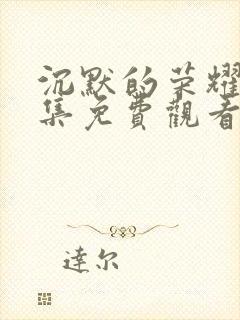 沉默的荣耀
集免費觀看
達尔